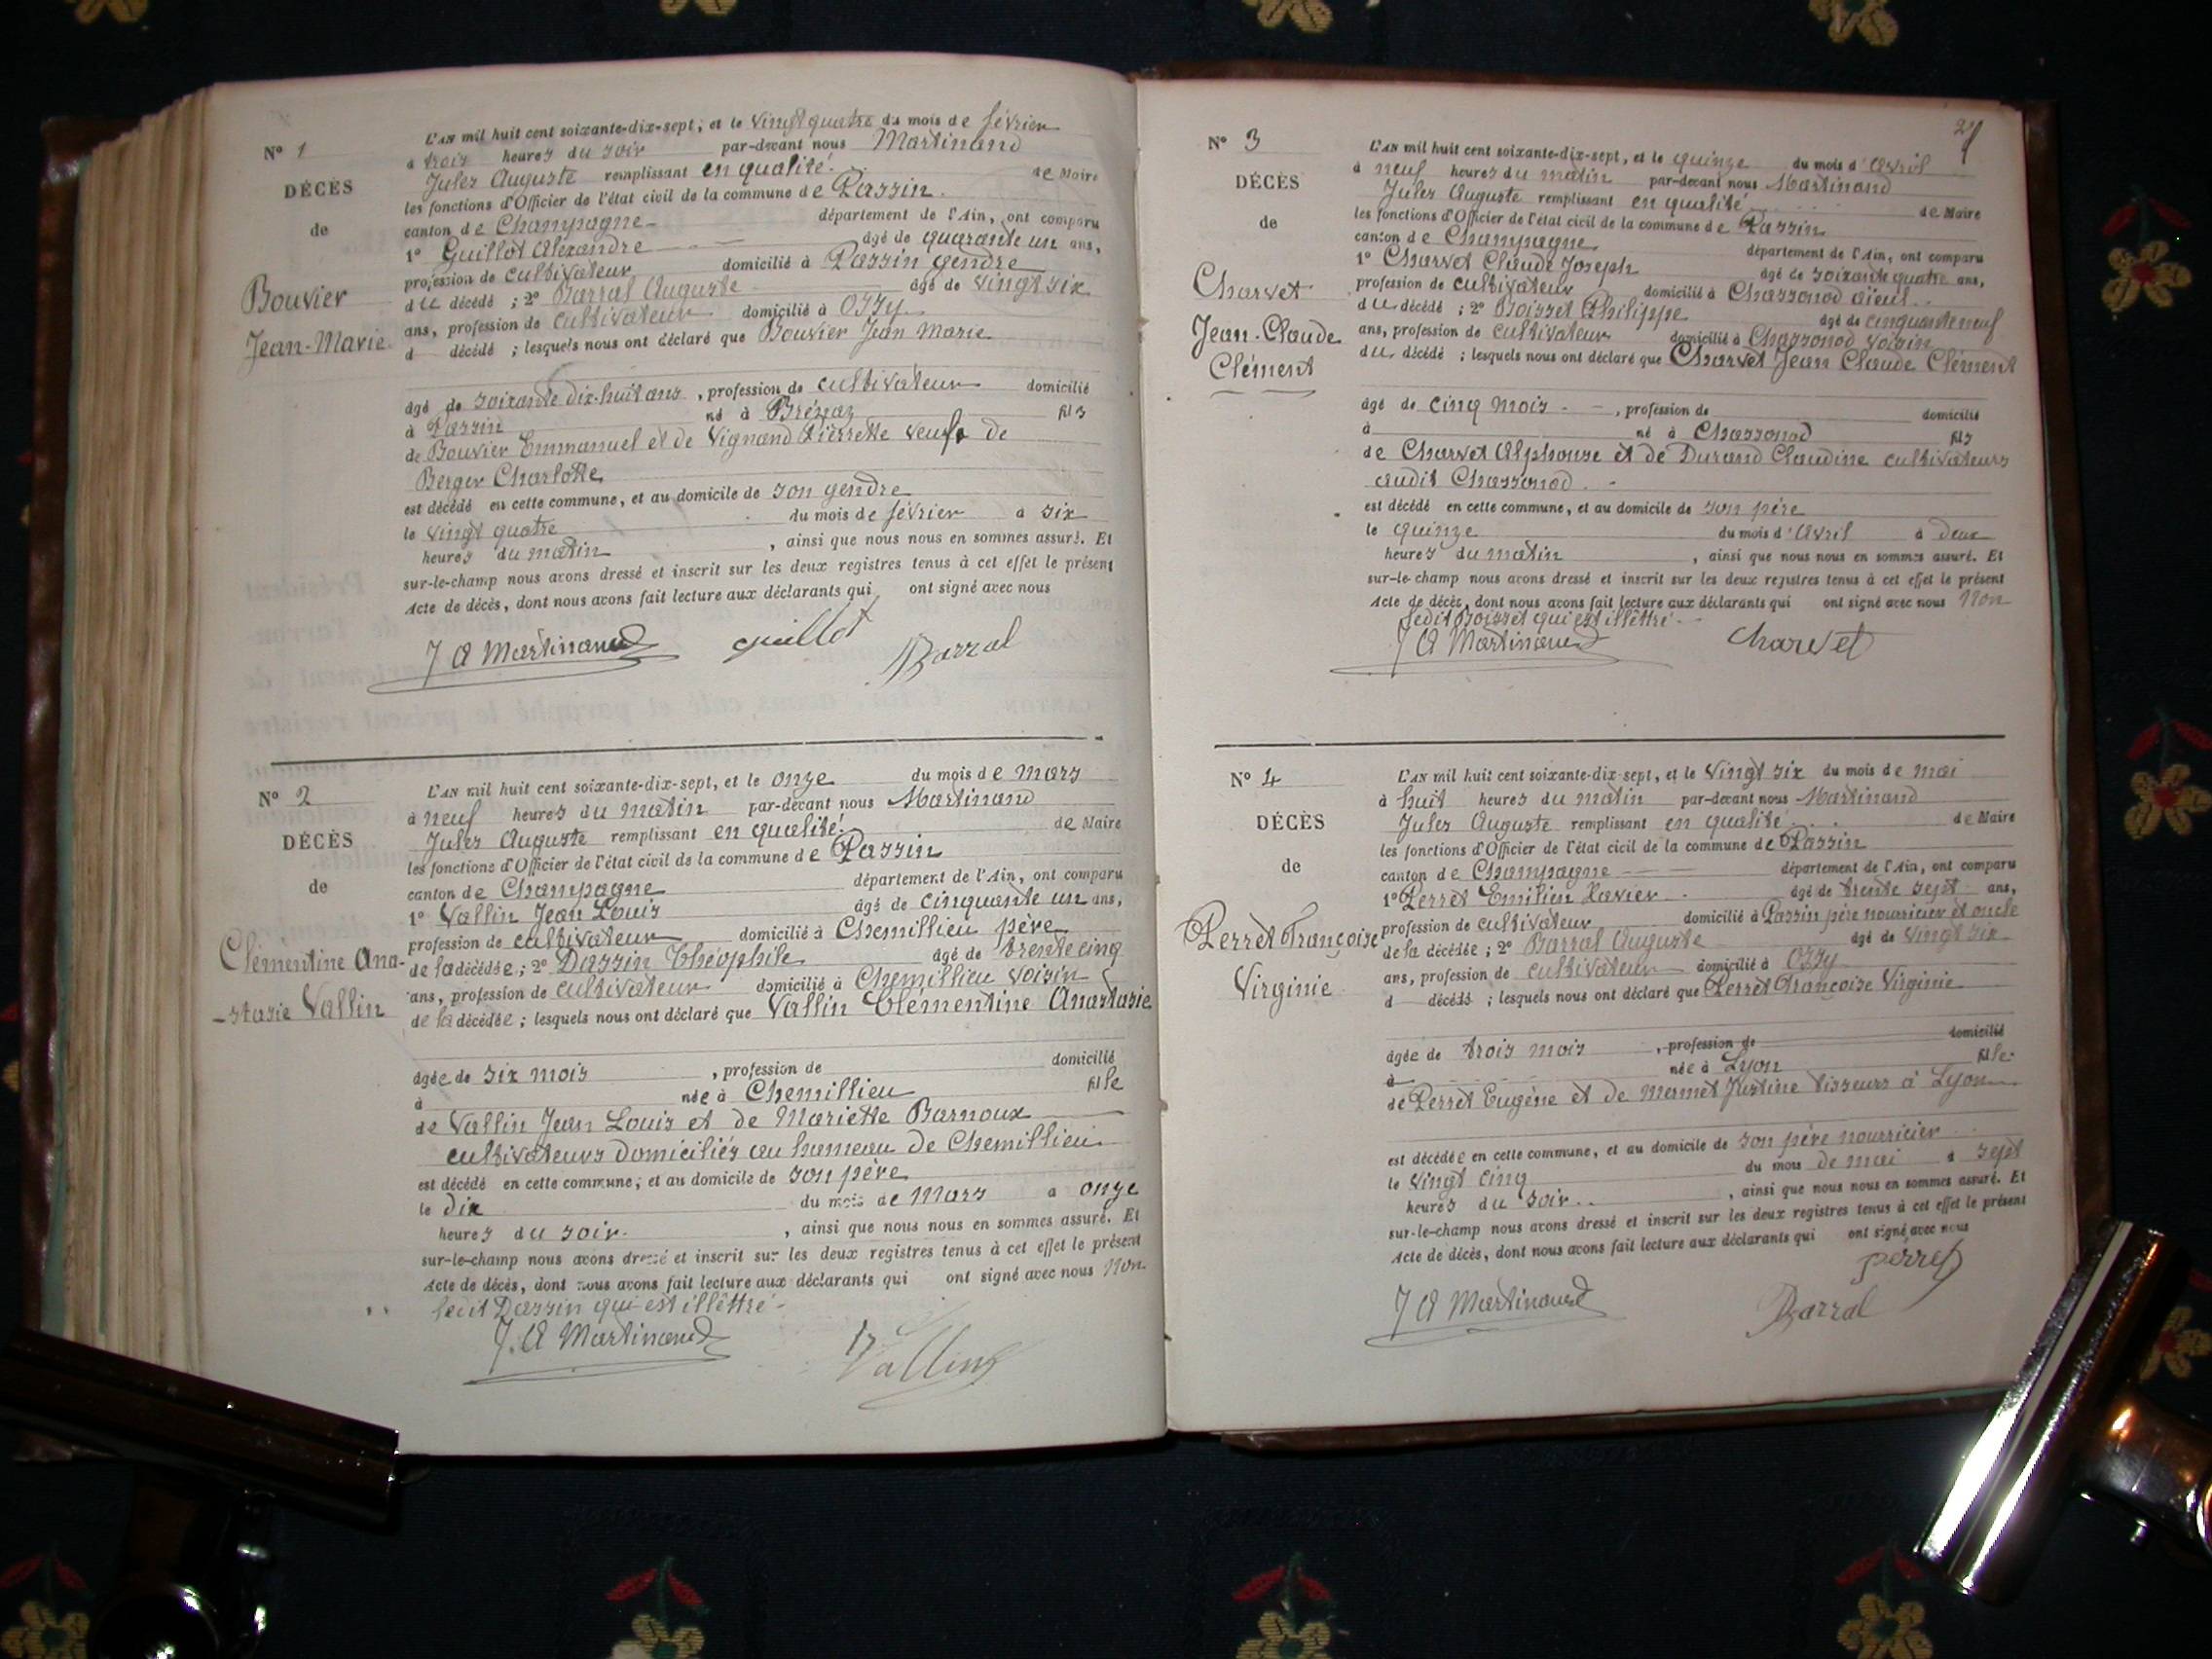 N° 1
DÉCÈS
de
Bouvier
Jean-Marie
L'AN mil huit cent soixante-dix-sept, et le vingt quatre du mois de février
à trois heures du soir par-devant nous Martinand
Jules Auguste remplissant en qualité de Maire
les fonctions d'Officier de l'état civil de la commune de Passin
canton de Champagne département de l'Ain, ont comparu
1° Guillot Alexandre âgé de quarante un ans,
profession de cultivateur domicilié à Passin gendre
du décédé ; 2° Barral Auguste âgé de vingt six
ans, profession de cultivateur domicilié à Ossy
d décédé ; lesquels nous ont déclaré que Bouvier Jean Marie
âgé de soixante dix-huit ans, profession de cultivateur domicilié
à Passin né à Brénaz fils
de Bouvier Emmanuel et de Vignand Pierrette veuf de
Berger Charlotte
est décédé en cette commune, et au domicile de son gendre
le vingt quatre du mois de février à six
heures du matin, ainsi que nous nous en sommes assuré. Et
sur-le-champ nous avons dressé et inscrit sur les deux registres tenus à cet effet le présent
Acte de décès, dont nous avons fait lecture aux déclarants qui ont signé avec nous
J A Martinand guillot Barral
N° 2
DÉCÈS
de
Clémentine Ana-
-stasie Vallin
L'AN mil huit cent soixante-dix-sept, et le onze du mois de mars
à neuf heures du matin par-devant nous Martinand
Jules Auguste remplissant en qualité de Maire
les fonctions d'Officier de l'état civil de la commune de Passin
canton de Champagne département de l'Ain, ont comparu
1° Vallin Jean Louis âgé de cinquante un ans,
profession de cultivateur domicilié à Chemillieu père
de la décédée ; 2° Dassin Théophile âgé de trente cinq
ans, profession de cultivateur domicilié à Chemillieu voisin
de la décédée ; lesquels nous ont déclaré que Vallin Clémentine Anastasie
âgée de six mois, profession de domicilié
à née à Chemillieu fille
de Vallin Jean Louis et de Mariette Barnoux
cultivateurs domiciliés au hameau de Chemillieu
est décédé en cette commune, et au domicile de son père
le dix du mois de Mars à onze
heures du soir, ainsi que nous nous en sommes assuré. Et
sur-le-champ nous avons dressé et inscrit sur les deux registres tenus à cet effet le présent
Acte de décès, dont nous avons fait lecture aux déclarants qui ont signé avec nous Non
ledit Dassin qui est illéttré
J. A Martinand Vallin
N° 3
DÉCÈS
de
Charvet
Jean-Claude
Clément
L'AN mil huit cent soixante-dix-sept, et le quinze du mois d'avril
à neuf heures du matin par-devant nous Martinand
Jules Auguste remplissant en qualité de Maire
les fonctions d'Officier de l'état civil de la commune de Passin
canton de Champagne département de l'Ain, ont comparu
1° Charvet Claude Joseph âgé de soixante quatre ans,
profession de cultivateur domicilié à Chassonod aieul
du décédé ; 2° Boisset Philippe âgé de cinquante neuf
ans, profession de cultivateur domicilié à Chassonod voisin
du décédé ; lesquels nous ont déclaré que Charvet Jean Claude Clément
âgé de cinq mois, profession de domicilié
à né à Chassonod fils
de Charvet Alphonse et de Durand Claudine cultivateurs
audit Chassonod
est décédé en cette commune, et au domicile de son père
le quinze du mois d'Avril à deux
heures du matin, ainsi que nous nous en sommes assuré. Et
sur-le-champ nous avons dressé et inscrit sur les deux registres tenus à cet effet le présent
Acte de décès, dont nous avons fait lecture aux déclarants qui ont signé avec nous Non
ledit Boisset qui est illéttré
J A Martinand Charvet
N° 4
DÉCÈS
de
Perret Françoise
Virginie
L'AN mil huit cent soixante-dix-sept, et le vingt six du mois de mai
à huit heures du matin par-devant nous Martinand
Jules Auguste remplissant en qualité de Maire
les fonctions d'Officier de l'état civil de la commune de Passin
canton de Champagne département de l'Ain, ont comparu
1° Perret Emilien Xavier âgé de trente sept ans,
profession de cultivateur domicilié à Passin père nourricier et oncle
de la décédée ; 2° Barral Auguste âgé de vingt six
ans, profession de cultivateur domicilié à Ossy
d décédé ; lesquels nous ont déclaré que Perret Françoise Virginie
âgée de trois mois, profession de domicilié
à née à Lyon fille
de Perret Eugène et de Mermet Justine tisseurs à Lyon
est décédée en cette commune, et au domicile de son père nourricier
le vingt cinq du mois de mai à sept
heures du soir, ainsi que nous nous en sommes assuré. Et
sur-le-champ nous avons dressé et inscrit sur les deux registres tenus à cet effet le présent
Acte de décès, dont nous avons fait lecture aux déclarants qui ont signé avec nous
perret
J A Martinand Barral